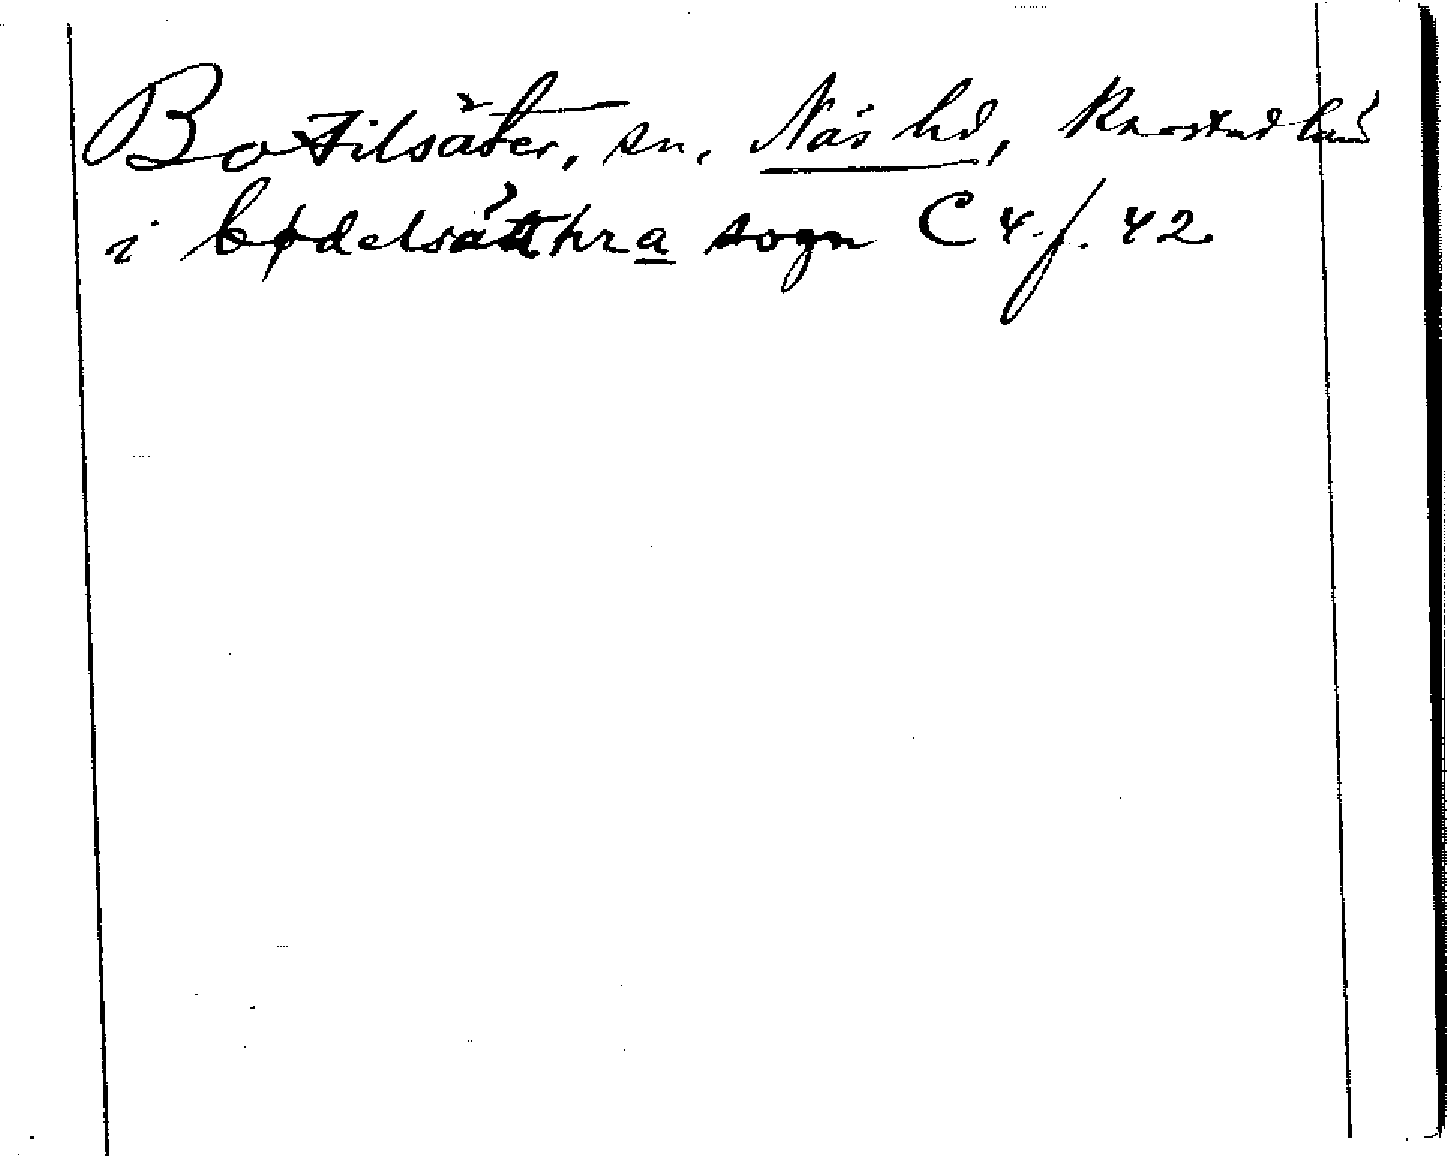 Botilsäter, sn, Näs hd, Karstad län
i bødelsätthra sogn C 4 f. 42